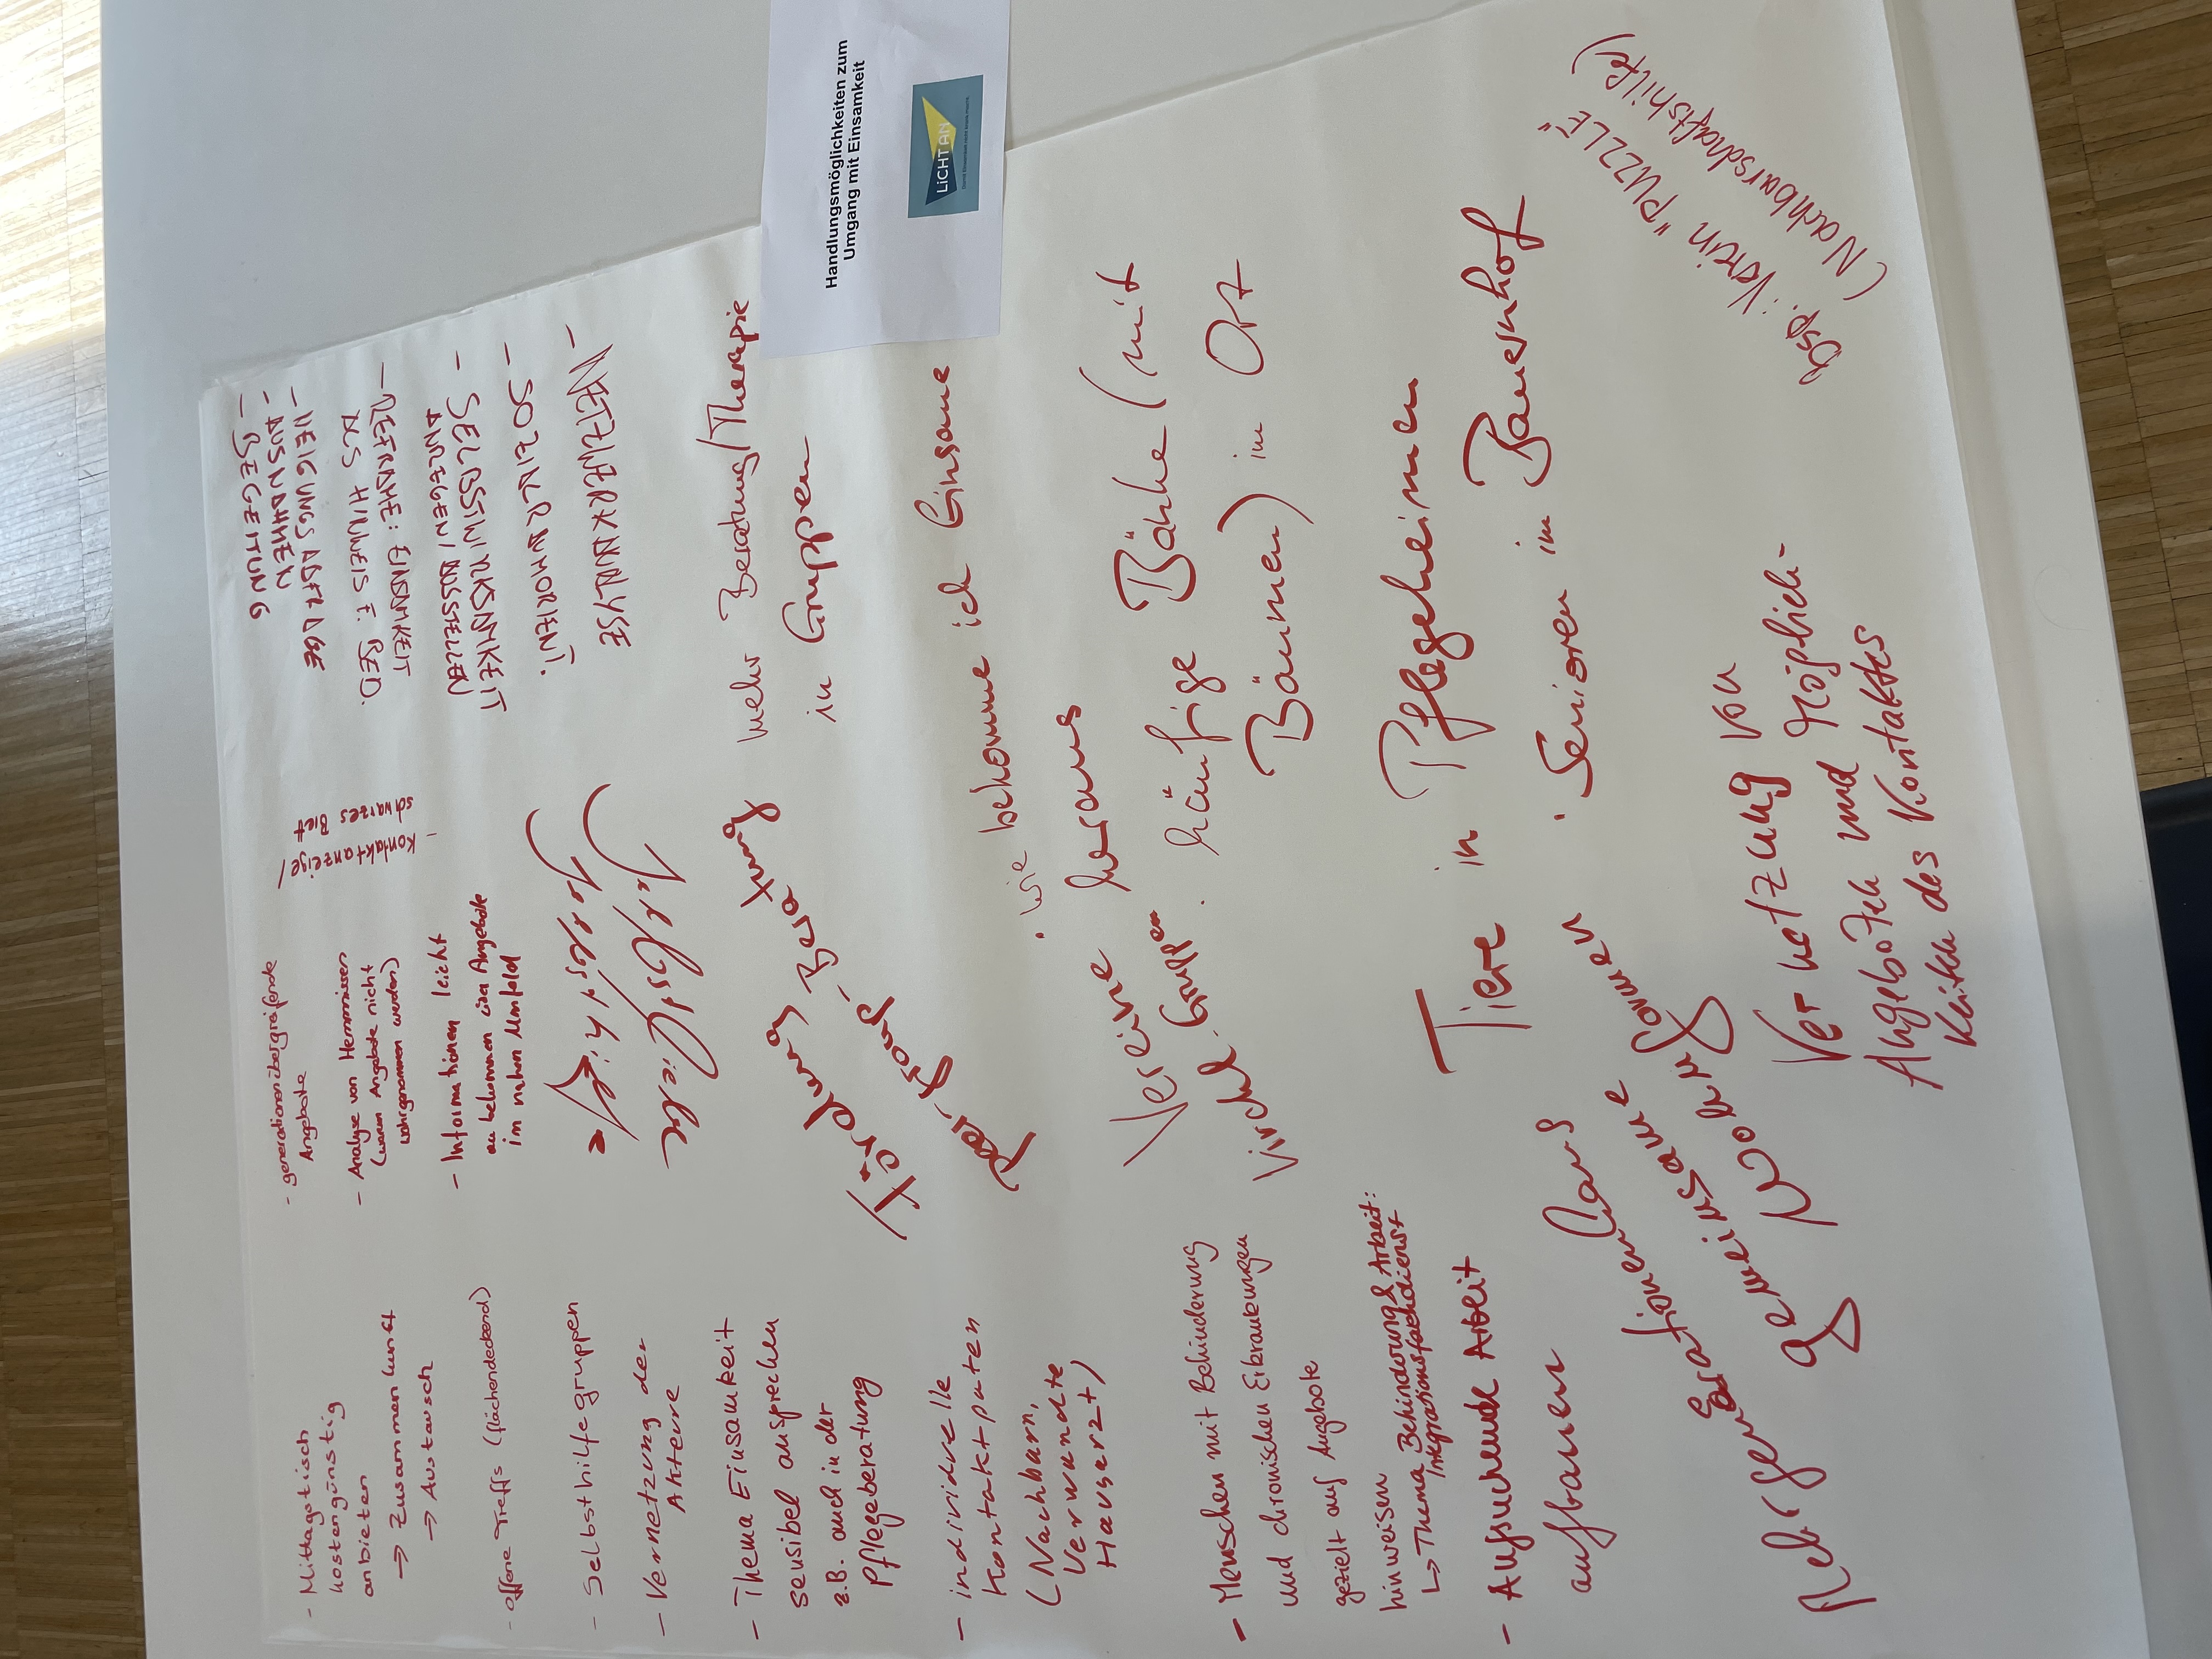 Handlungsmöglichkeiten zum
Umgang mit Einsamkeit
LiCHT AN
- Mittagstisch
kostengünstig
anbieten
→ Zusammenkunft
→ Austausch
- offene Treffs (flächendeckend)
- Selbsthilfegruppen
- Vernetzung der
Akteure
- Thema Einsamkeit
sensibel ansprechen
z.B. auch in der
Pflegeberatung
- individuelle
Kontaktpaten
(Nachbarn,
Verwandte
Hausarzt)
- Menschen mit Behinderung
und chronischen Erkrankungen
gezielt auf Angebote
hinweisen
↳ Thema Behinderung & Arbeit:
Integrationsfachdienst
- Aufsuchende Arbeit
aufbauen
- generationenübergreifende
Angebote
- Analyse von Hemmnissen
(warum Angebote nicht
wahrgenommen werden)
- Informationen leicht
zu bekommen über Angebote
im nahen Umfeld
Kontaktanzeige/
schwarzes
Förderung
Peer-Group-Beratung
Vereine
Virtuel. Gruppen
- BEGLEITUNG
- AUSNAHMEN
- NEIGUNGSABFRAGE
- REFRAME: EINSAMKEIT
ALS HINWEIS F. BED.
- SELBSTWIRKSAMKEIT
ANREGEN/
- SOZIALRAUMORIENT.
- NETZWERKANALYSE
mehr Beratung/Therapie
in Gruppen
· wie bekomme ich Einsame
heraus
· häufige Bänke (mit
Bäumen) im Ort
Tiere in Pflegeheimen
· Senioren im Bauernhof
Mehrgenerationenhaus
gemeinsame
Wohnformen
Vernetzung von
Angeboten und Möglich-
keiten des Kontaktes
Bsp.: Verein "PUZZLE"
(Nachbarschaftshilfe)